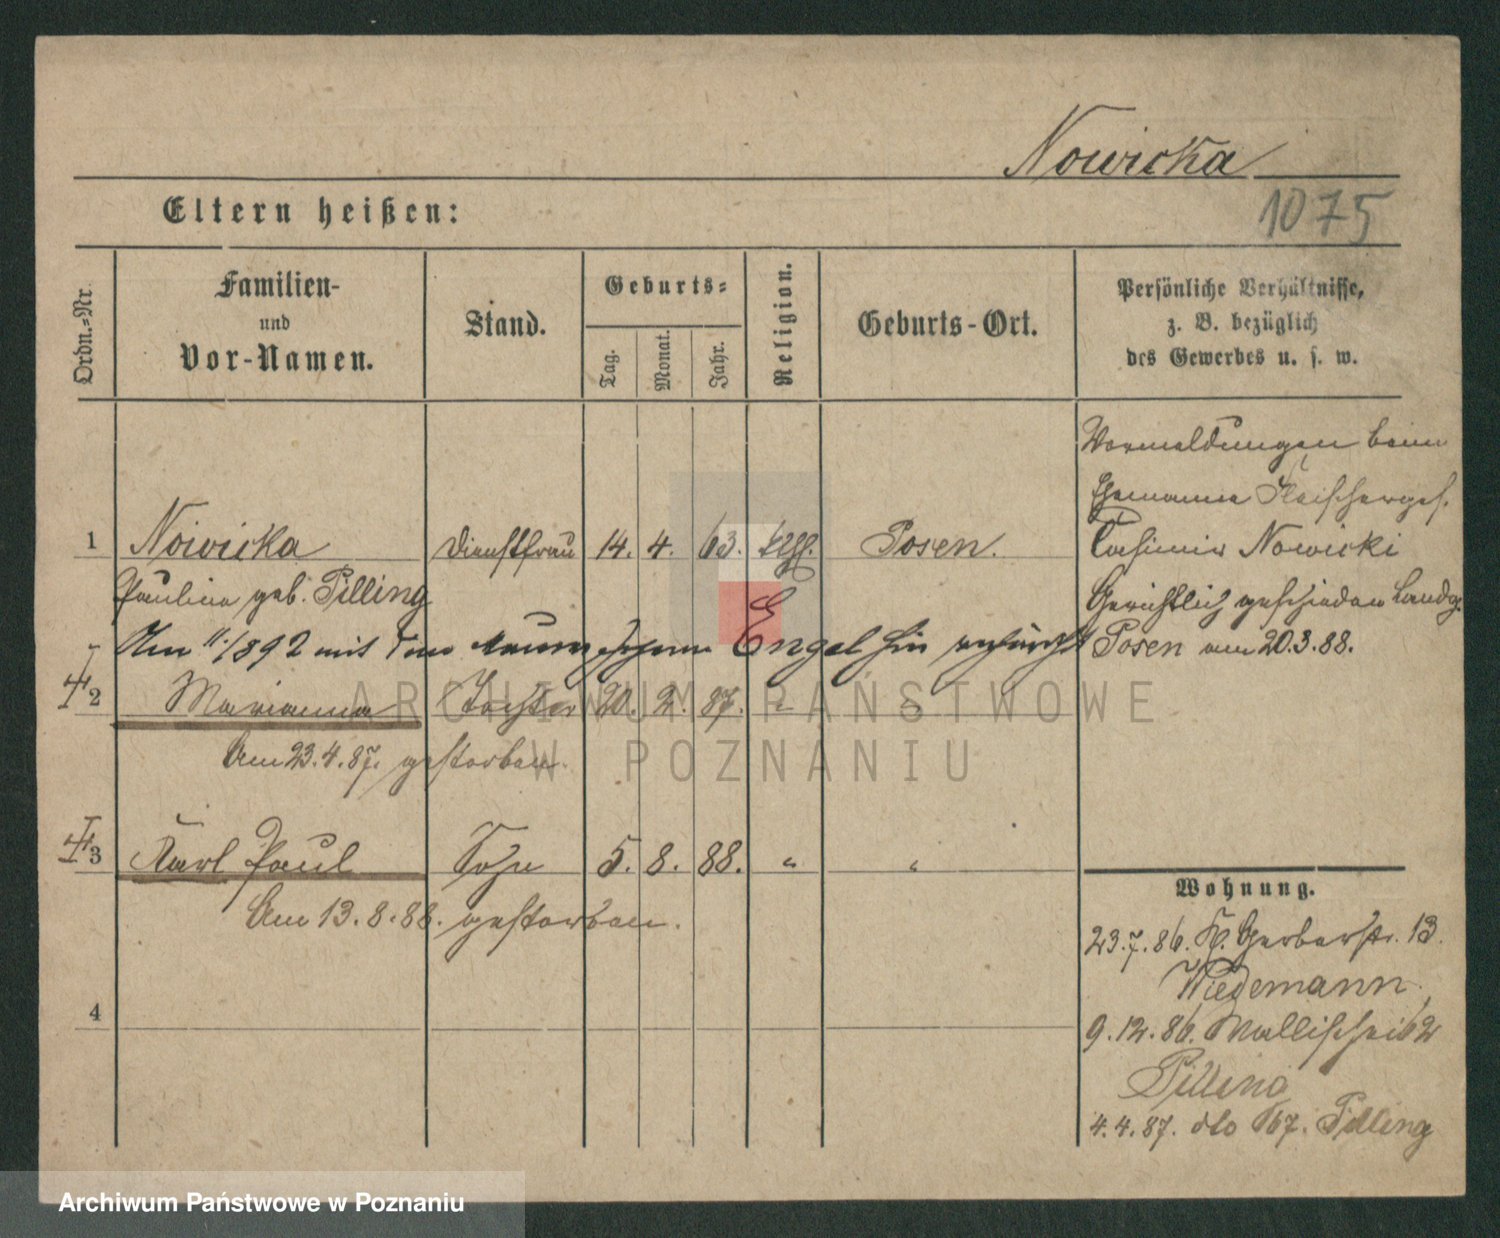 Nowicka
1075
Eltern heißen:
Ordn.-Nr.
Familien-
und
Vor-Namen.
Stand.
Geburts-
Tag.
Monat.
Jahr.
Religion.
Geburts-Ort.
Persönliche Verhältnisse,
z. B. bezüglich
des Gewerbes u. s. w.
Vormeldungen beim
Ehemanne Fleischerges.
Casimir Nowicki
Gerichtlich geschieden Landg.
Posen am 20.3.88.
1 Nowicka Dienstfrau 14. 4. 63. Posen.
Pauline geb. Pilling
Am 11./892 mit dem Engel hier
2 Marianna Tochter 20. 2. 87. "
Am 23.4.87. gestorben.
3 Karl Paul Sohn 5. 8. 88. " "
Am 13.8.88. gestorben.
4
Wohnung.
23.7.86. Kl. Gerberstr. 13.
Wiedemann
9.12.86. Wallischei 62
Pilling
4.4.87. dto 67. Pilling
ARCHIWUM PAŃSTWOWE
W POZNANIU
Archiwum Państwowe w Poznaniu